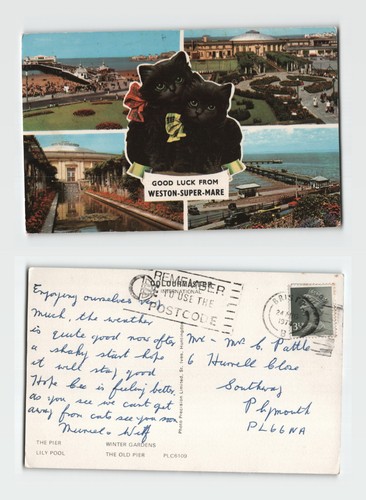 GOOD LUCK FROM
WESTON-SUPER-MARE
COLOURMASTER
INTERNATIONAL
REMEMBER
TO USE THE
POSTCODE
Enjoying ourselves very
Much, the weather
is quite good now after
a shaky start hope
it will stay good
Hope is feeling better
as you see we can't get
away from cats see you soon
Muriel & Wilf
Mr - Mrs C Pattle
6 Close
Southway
Plymouth
PL6 6NA
Photo Precision Limited, St. Ives,
THE PIER WINTER GARDENS
LILY POOL THE OLD PIER PLC8100